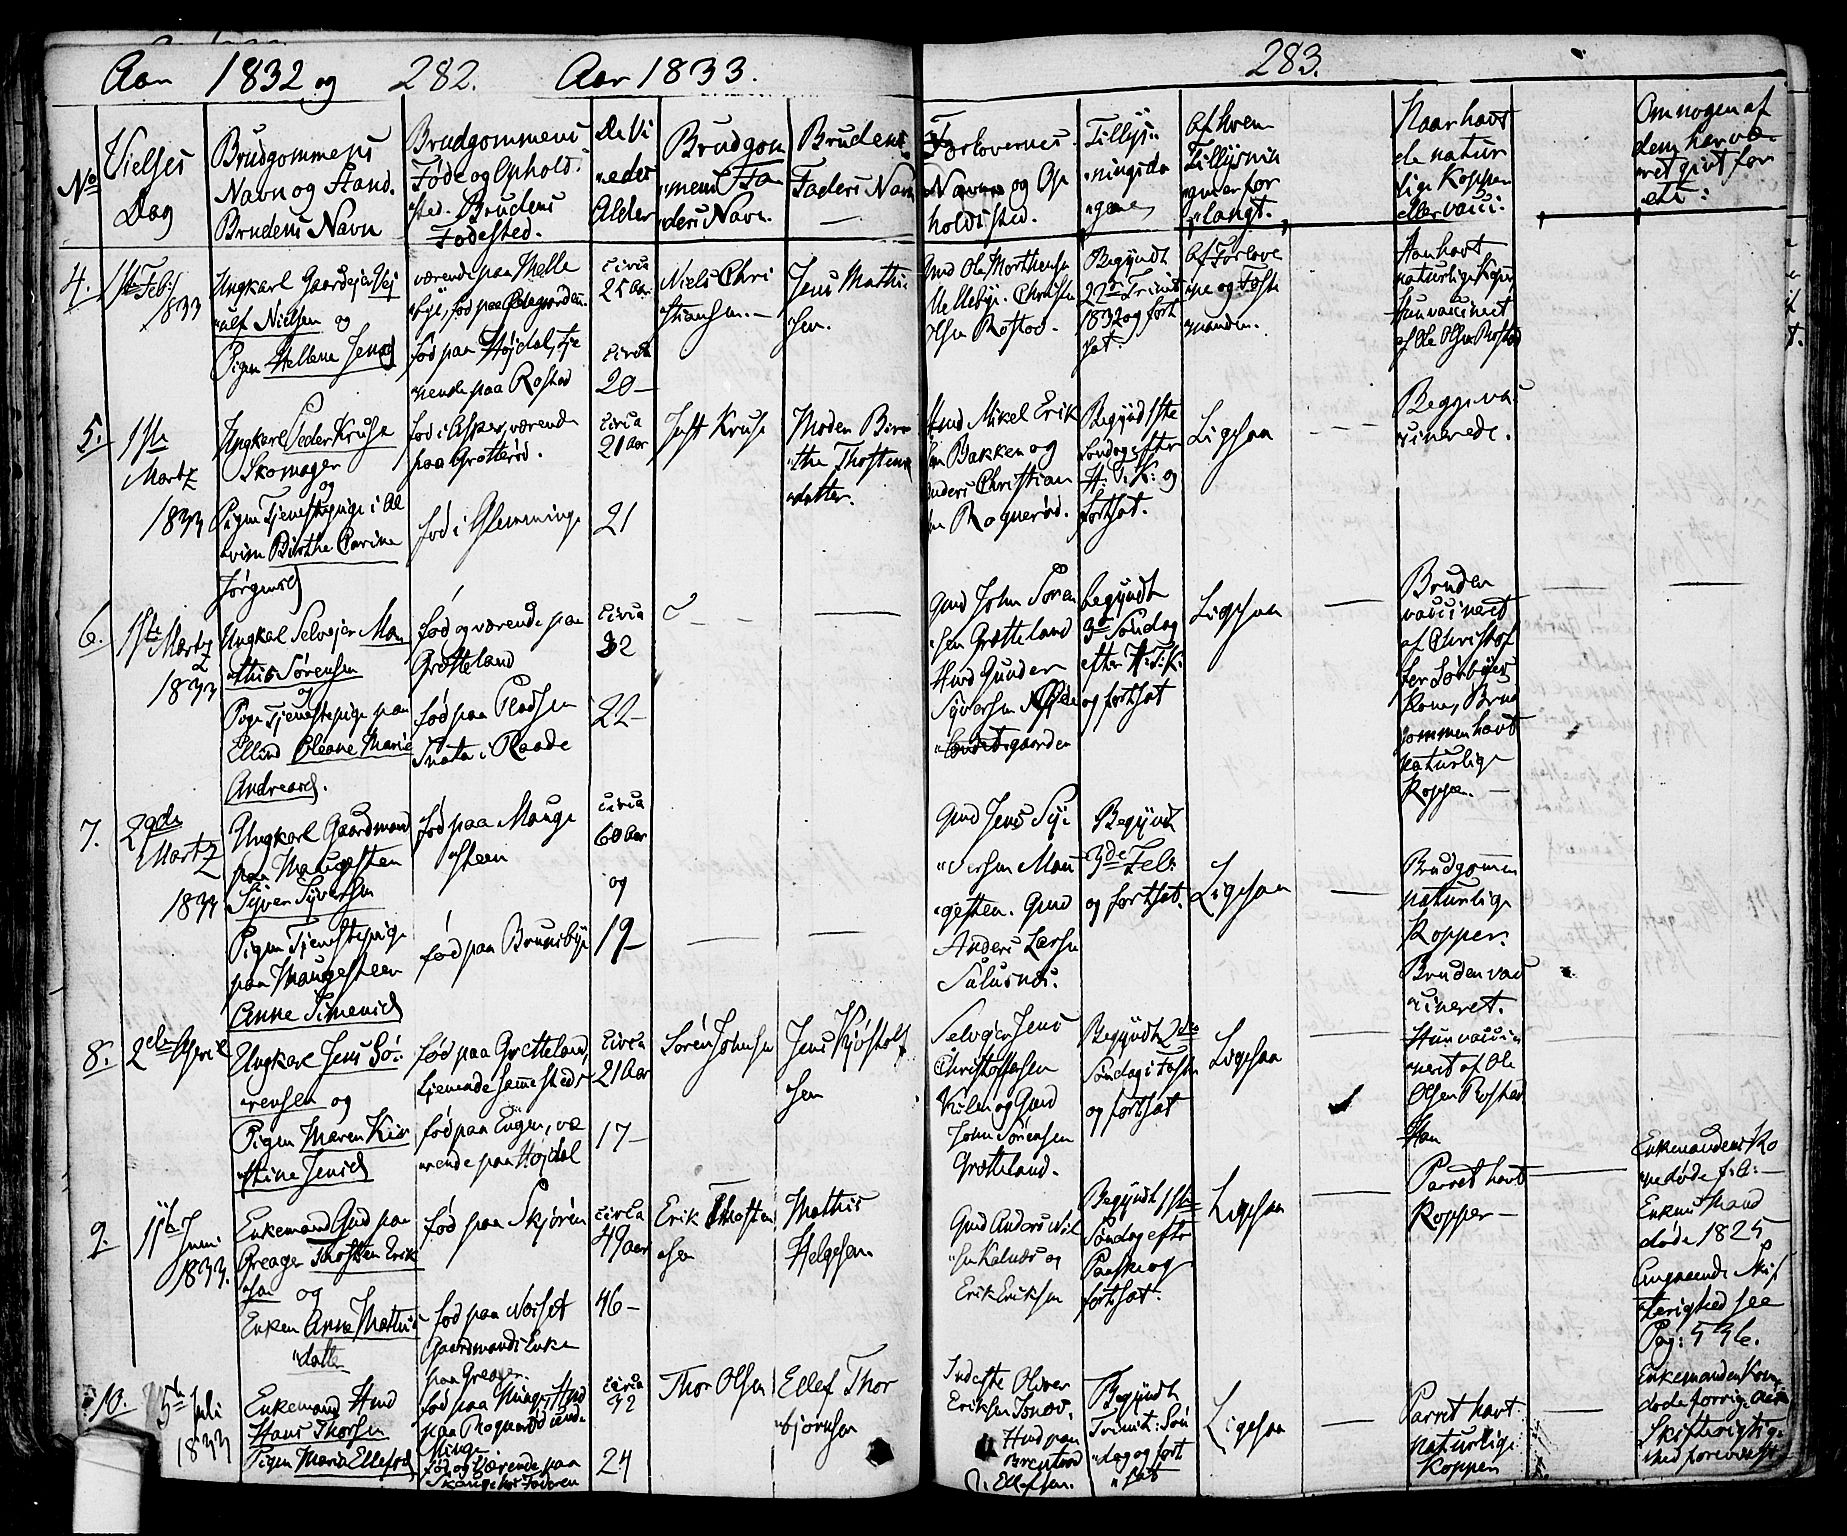 Aar 1832 og 282. Aar 1833.
283.
No
Vielses
Dag
Brudgommens
Navn og Stand.
Brudens Navn
Brudgommens
Føde og Ophold
sted. Brudens
Fødested.
De Vi
eedes
Alder
Brudgom
mens Fa
ders Navn.
Brudens
Faders Navn
Forlovernes
Navne og Op
holdssted.
Tillys
ningsda
gene
Af hvem
Tillysnin
gen er for
langt.
Naar havt
de natur
lige Kopper
eller vacci:
Om nogen af
dem har væ
ret givt før
etc:
4.
1ste Feb:
1833
Ungkarl Gaardejer
ulf Nielsen og
Pigen Hellene Jensd
værende paa Melle
bye, fød paa
fød paa Højdal, tje
nende paa Rostad
circa
25 Aar
circa
20 –
Niels Chri
stiansen. –
Jens Mathi
sen.
Gmd Ole Morthensen
Mellebye. Christen
Olsen Rostad.
Begyndt
22de Trinit
1832 og fort
sat.
Af Forlove
rne og Føste
manden.
Han havt
naturlige Kopper,
Hun vaccineret
af Ole Olsen Rostad
5.
1ste
Martz
1833
Ungkarl Peder Kruse
Skomager
og
Pigen Tjenestepige i Al
vim Birthe Carine
Jørgensd
fød i Asper, værende
paa Grotterød.
fød i Glemminge
circa
21 Aar
21
Just Kruse
Moder Bir
the Thostens
datter.
Hmd Mikel Erik
sen Bakken og
Anders Christian
sen Rognerød.
Begyndt 1ste
Søndag efter
H. 3. K: og
fortsat.
Ligesaa
Begge va
ccinerede.
6.
1ste Martz
1833
Ungkal Selvejer Ma
this Sørensen
og
Pige Tjenestepige paa
Ellind Oleane Marie
Andreasd.
fød og værende paa
Grøtteland
fød paa Pladsen
Snata i Raade
circa
32
22 –
Gmd John Søren
sen Grøtteland
Hmd Gunder
Syversen
gaarden
begyndt
3de Søndag
efter H. 3. K:
og fortsat
Ligesaa
Bruden
vaccineret
af Christof
fer Sørbyes
Kone, Brud
gommen havt
naturlige
Kopper. –
7.
29de
Martz
1833
Ungkarl Gaardmand
paa Maugesten
Syver Syversen
Pigen Tjenestepige
paa Maugesteen
Anne Simensd
fød paa Mauge
steen
fød paa Brunsbye
circa
60 Aar
og
19 –
Gmd Jens Sy
versen Mau
gesten. Gmd
Anders Larsen
Salusnæs.
Begyndt
3de Feb:
og fortsat.
Ligesaa
Brudgommen
naturlige
Kopper.
Bruden vac
cineret.
8.
2den April
Ungkarl Jens Sø
rensen og
Pigen Maren Kir
stine Jensd
fød paa Grøtteland,
tjenende sammesteds
fød paa Engen, væ
rende paa Højdal
circa
21 Aar
17 –
Søren Johnsen
Jens Kjøstolf
sen
Selvejer Jens
Christoffersen
Kilen og Gmd
John Sørensen
Grøtteland.
Begyndt 2den
Søndag i Faste
og fortsat
Ligesaa
Hun vacci
neret af Ole
Olsen Rostad
Han
9.
11te Juni
1833.
Enkemand Gmd paa
Greager Thosten Erik
sen og
Enken Anne Mathis
datter
fød paa Skjøren
fød paa Norset
Gaardmands Enke
paa Greager.
circa
49 aar
46 –
Erik Thosten
sen
Mathis
Helgesen
Gmd Anders Nil
sen Kalnæs og
Erik Eriksen
Begyndt 1ste
Søndag efter
Paaske og
fortsat.
Ligesaa
Parret havt
Kopper –
Enkemandens Ko
ne døde f: A: –
Enkens Mand
døde 1825
Angaaende Skif
terighed see
Pag: 536.
10.
5te Juli
1833
Enkemand Hmd
Hans Thorsen
Pigen Maria Ellefsd
fød paa Minge, Hmd
paa Rognerød under
Minge
fød og værende paa
Skinge hos Faderen
circa
32
24
Thor Olsen
Ellef Thor
bjørnsen
Inderste Oliver
Eriksen
Hmd paa
Brenterød
O. Ellefsen.
Begyndt
Trinit: Søn
dag og fort
sat
Ligesaa
Parret havt
naturlige
Kopper
Enkemanden Kone
døde forrige Aar
Skifterettig
hed forevist